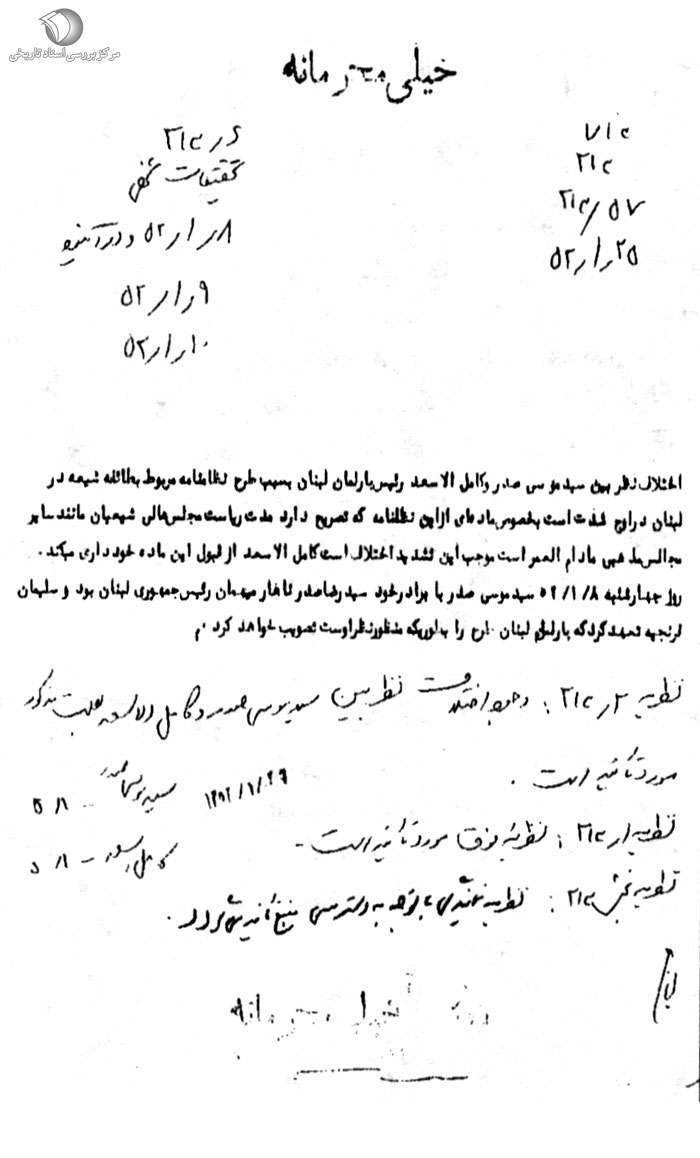 مرکز بررسی اسناد تاریخی
خیلی محرمانه
۷۱۲
۲۱۲
۲۱۲/۵۷
۵۲/۱/۲۵
تحقیقات
۵۲/۱/۸ و در آن
۵۲/۱/۹
۵۲/۱/۱۰
اختلاف نظر بین سید موسی صدر و کامل الاسعد رئیس پارلمان لبنان بسبب طرح نظامنامه مربوط بطائفه شیعه در
لبنان در اوج شدت است بخصوص ماده‌ای از این نظامنامه که تصریح دارد مدت ریاست مجلس عالی شیعیان مانند سایر
مجالس مذهبی مادام العمر است موجب این تشدید اختلاف است کامل الاسعد از قبول این ماده خودداری میکند .
روز چهارشنبه ۵۲/۱/۸ سید موسی صدر با برادر خود سید رضا صدر ناهار میهمان رئیس جمهوری لبنان بود و سلیمان
فرنجیه تعهد کرد که پارلمان لبنان طرح را بطوریکه منظور نظر اوست تصویب خواهد کرد . م
نظریه : وجود اختلاف نظر بین سید موسی صدر و کامل الاسعد بعلت مذکور
مورد تأئید است .
سید موسی صدر
نظریه : نظریه فوق مورد تأئید است -
کامل اسعد
نظریه بخش ۲۱۲ : نظریه با توجه به دسترسی منبع تأئید میگردد .
خیلی محرمانه